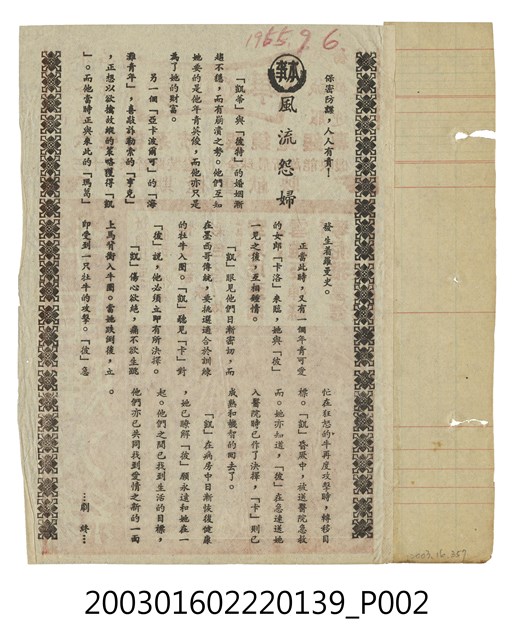 1955.9.6.
保密防諜,人人有責!
本事
風流怨婦
「凱蒂」與「彼特」的婚姻漸
趨不穩,而有崩潰之勢。他們互知
她要的是他年青英俊,而他亦只是
為了她的財富。
另一個「亞卡波爾可」的「海
灘青年」,喜敲詐勒索的「亨克」
,正想以欲擒故縱的策略獲得「凱
」。而他當時正與來此的「瑪葛」
發生着羅曼史。
正當此時,又有一個年青可愛
的女郎「卡洛」來臨,她與「彼」
一見之後,互相鍾情。
「凱」眼見他們日漸密切,而
在墨西哥傳統,要挑選適合於訓練
的牡牛入圈。「凱」聽見「卡」對
「彼」說,他必須立即有所決擇。
「凱」傷心欲絕,痛不欲生躍
上馬背衝入牛圈。當她跌倒後,立
即受到一只牡牛的攻擊。「彼」急
忙在狂怒的牛再度攻擊時,轉移目
標。「凱」昏厥中,被送醫院急救
而。她亦知道,「彼」在急速送她
入醫院時已作了決擇,「卡」則已
成熟和機智的回去了。
「凱」在病房中日漸恢復健康
,她已瞭解「彼」願永遠和她在一
起。他們之間已找到生活的目標,
他們亦已共同找到愛情之新的一面
。
…劇 終…
2003.16.257
200301602220139_P002